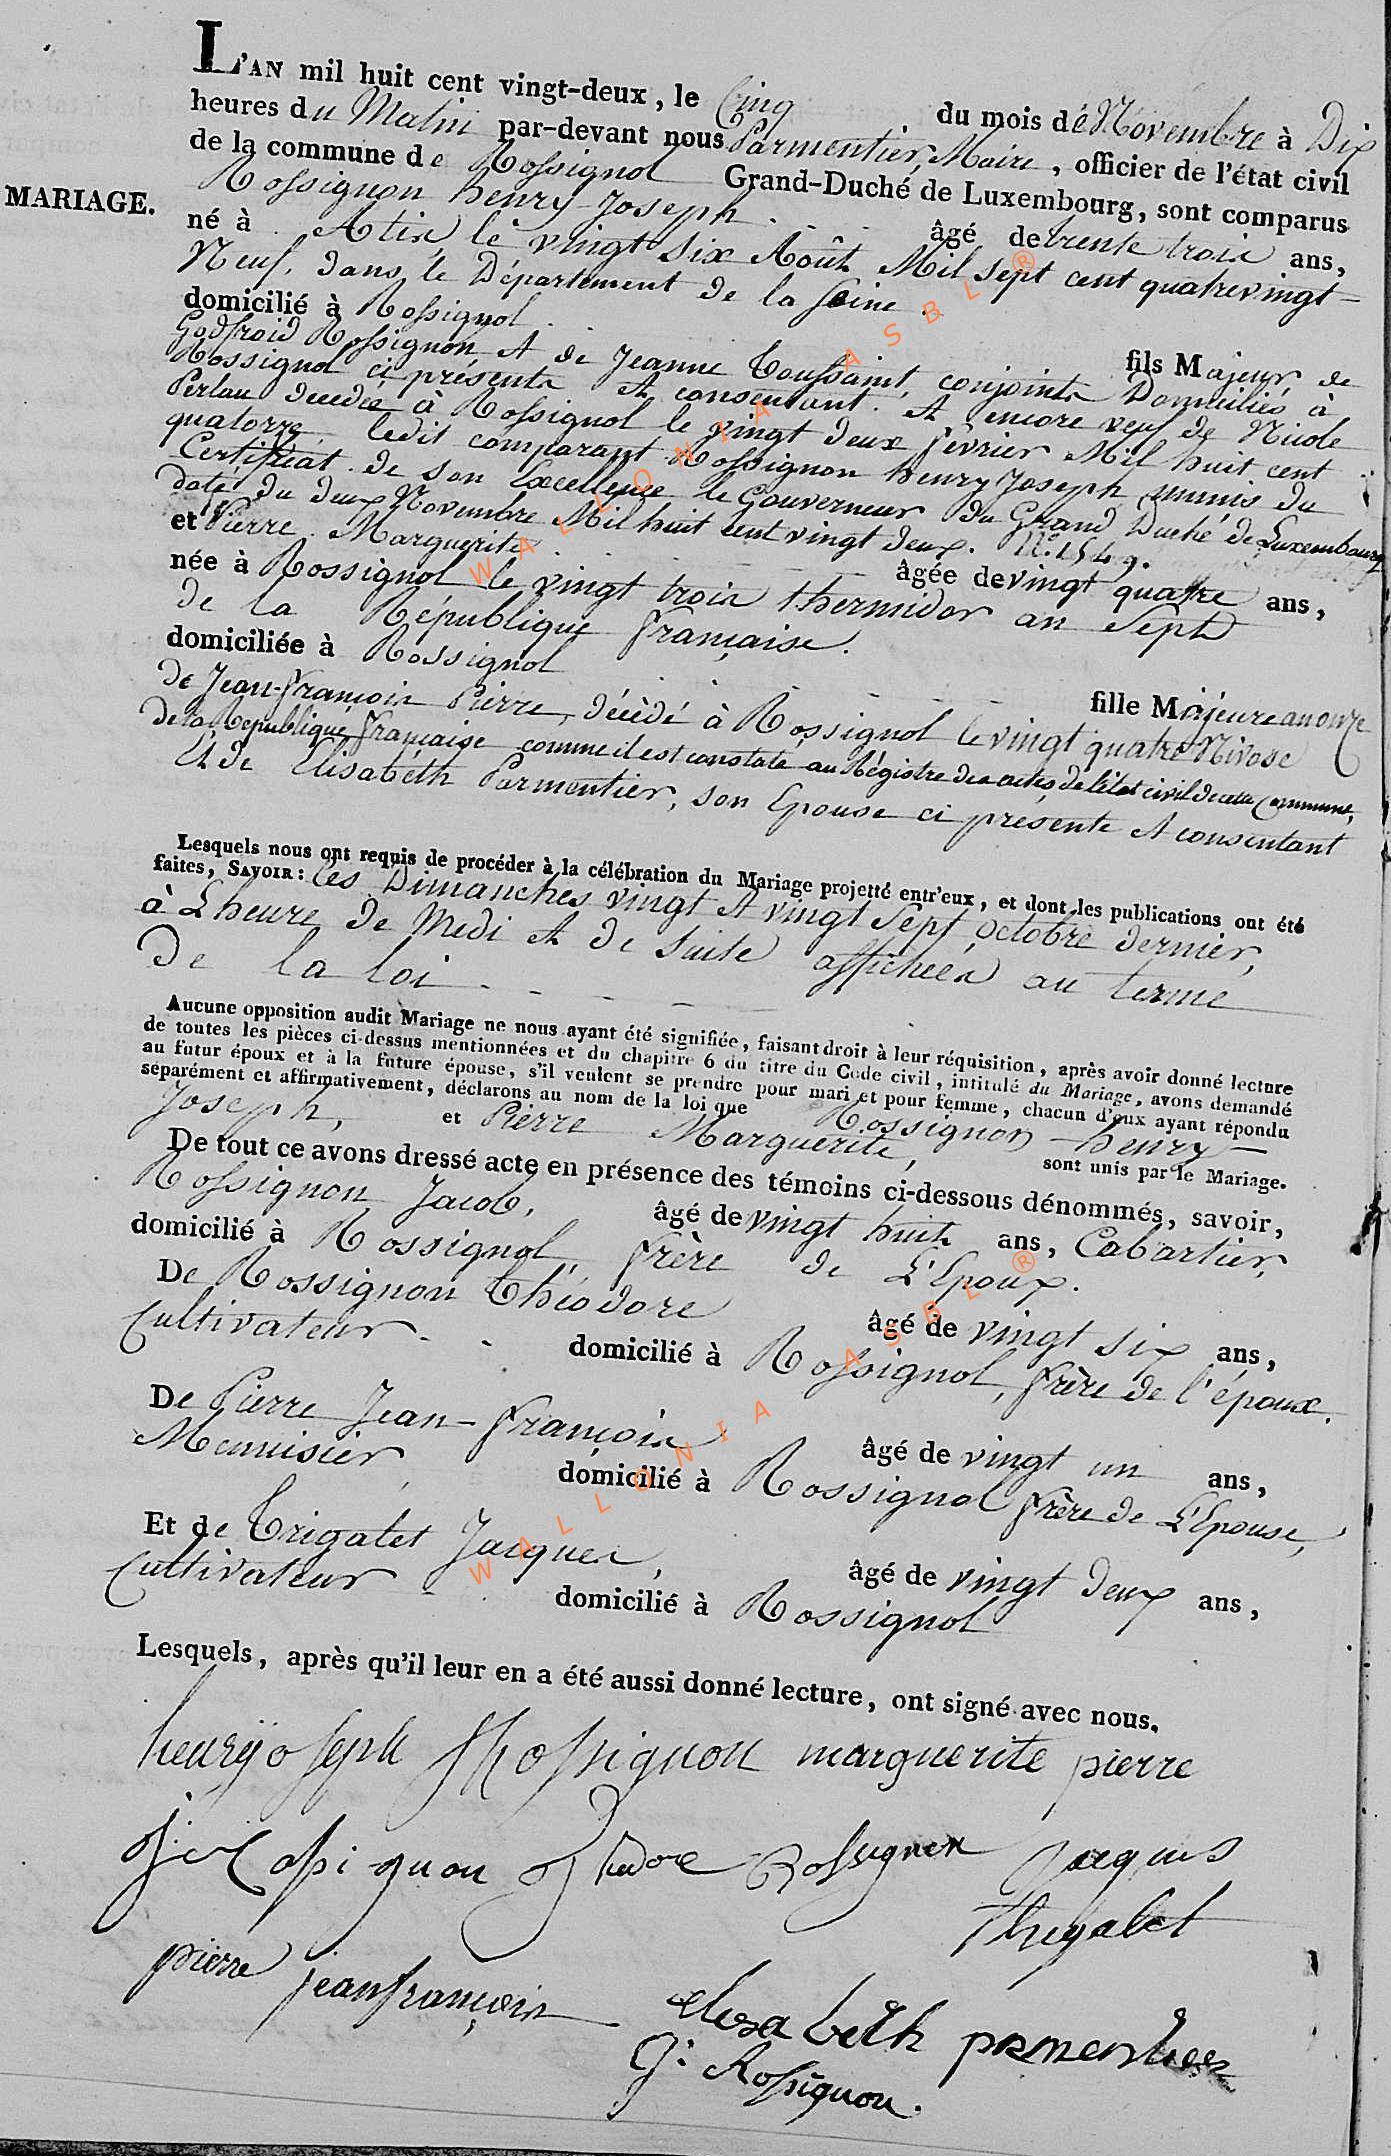 L'AN mil huit cent vingt-deux, le Cinq du mois de Novembre à Dix
heures du Matin par-devant nous Parmentier, Maire, officier de l'état civil
de la commune de Rossignol Grand-Duché de Luxembourg, sont comparus
MARIAGE.
Rossignon henry-Joseph âgé de trente trois ans,
né à Atis, le vingt six Août Mil sept cent quatrevingt-
Neuf, dans le Département de la Seine.
domicilié à Rossignol fils Majeur de
Godfroid Rossignon, et de Jeanne Toussaint, conjoints Domiciliés à
Rossignol ci présents et consentant. et encore veuf de Nicole
Perlau decedée à Rossignol le vingt deux fevrier Mil huit cent
quatorze, ledit comparant Rossignon henry Joseph munis du
Certificat de son Excellence le Gouverneur du Grand Duché de Luxembourg
date du deux Novembre Mil huit cent vingt deux. N.º 1549.
et Pierre Marguerite âgée de vingt quatre ans,
née à Rossignol le vingt trois thermidor an Sept
de la République française.
domiciliée à Rossignol fille Majeure
de Jean-françois Pierre, décèdé à Rossignol le vingt quatre Nivose an onze
de la Republique française comme il est constaté au Régistre des actes de l'état civil de cette Commune,
Et de Elisabéth Parmentier, son Epouse ci présente et consentant
Lesquels nous ont requis de procéder à la célébration du Mariage projetté entr'eux, et dont les publications ont été
faites, SAVOIR: les Dimanches vingt et vingt Sept octobre dernier,
à L'heure de Medi et de suite affichées au terme
de la loi
Aucune opposition audit Mariage ne nous ayant été signifiée, faisant droit à leur réquisition, après avoir donné lecture
de toutes les pièces ci-dessus mentionnées et du chapitre 6 du titre du Code civil, intitulé du Mariage, avons demandé
au futur époux et à la future épouse, s'il veulent se prendre pour mari et pour femme, chacun d'eux ayant répondu
séparément et affirmativement, déclarons au nom de la loi que Rossignon henry-
Joseph, et Pierre Marguerite, sont unis par le Mariage.
De tout ce avons dressé acte en présence des témoins ci-dessous dénommés, savoir,
Rossignon Jacob, âgé de vingt huit ans, Cabartier,
domicilié à Rossignol, frère de L'Epoux.
De Rossignon Théodore âgé de vingt six ans,
Cultivateur domicilié à Rossignol, frère de l'époux.
De Pierre Jean-françois âgé de vingt un ans,
Menuisier domicilié à Rossignol frère de L'Epouse,
Et de Trigalet Jacques, âgé de vingt deux ans,
Cultivateur domicilié à Rossignol
Lesquels, après qu'il leur en a été aussi donné lecture, ont signé avec nous.
henry joseph Rossignon marguerite pierre
Rossignon Rossignon Jacques
Thrigalet
pierre jeanfrançois
elisabeth
G: Rossignon.
WALLONIA ASBL ®
WALLONIA ASBL ®